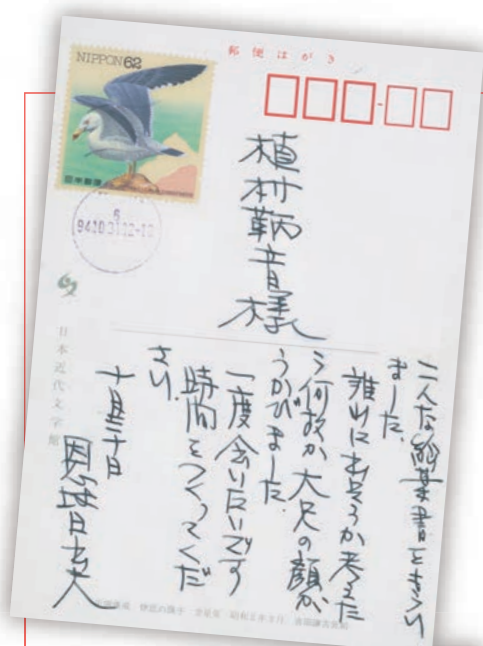 郵便はがき
NIPPON 62
日本郵便
植村鞆音様
日本近代文学館
こんな絵葉書をもらい
ました.
誰れに出そうか考えた
ら何故か大兄の顔が
うかびました.
一度会いたいです
時間をつくってくだ
さい.
十月三十日
恩地日出夫
康成 伊豆の踊子 金星堂 昭和